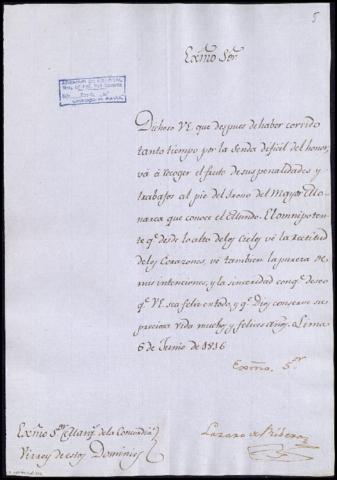 5
Exmo Sor.
Dichoso V.E. que despues de haber corrido
tanto tiempo por la senda dificil del honor,
vá á recoger el fruto de sus penalidades y
trabajos al pie del trono del Mayor Mo-
narca que conoce el Mundo. El omnipoten-
te qe. desde lo alto de los Cielos vé la rectitud
de los Corazones, vé tambien la pureza de
mis intenciones, y la sinceridad con qe. deseo
qe. V.E. sea feliz en todo, y qe. Dios conserve su
preciosa vida muchos y felices años. Lima
6 de Junio de 1816
Exmo. Sor.
Lazaro de Ribera
Exmo Sor. Marqs. de la Concordia
Virrey de estos Dominios